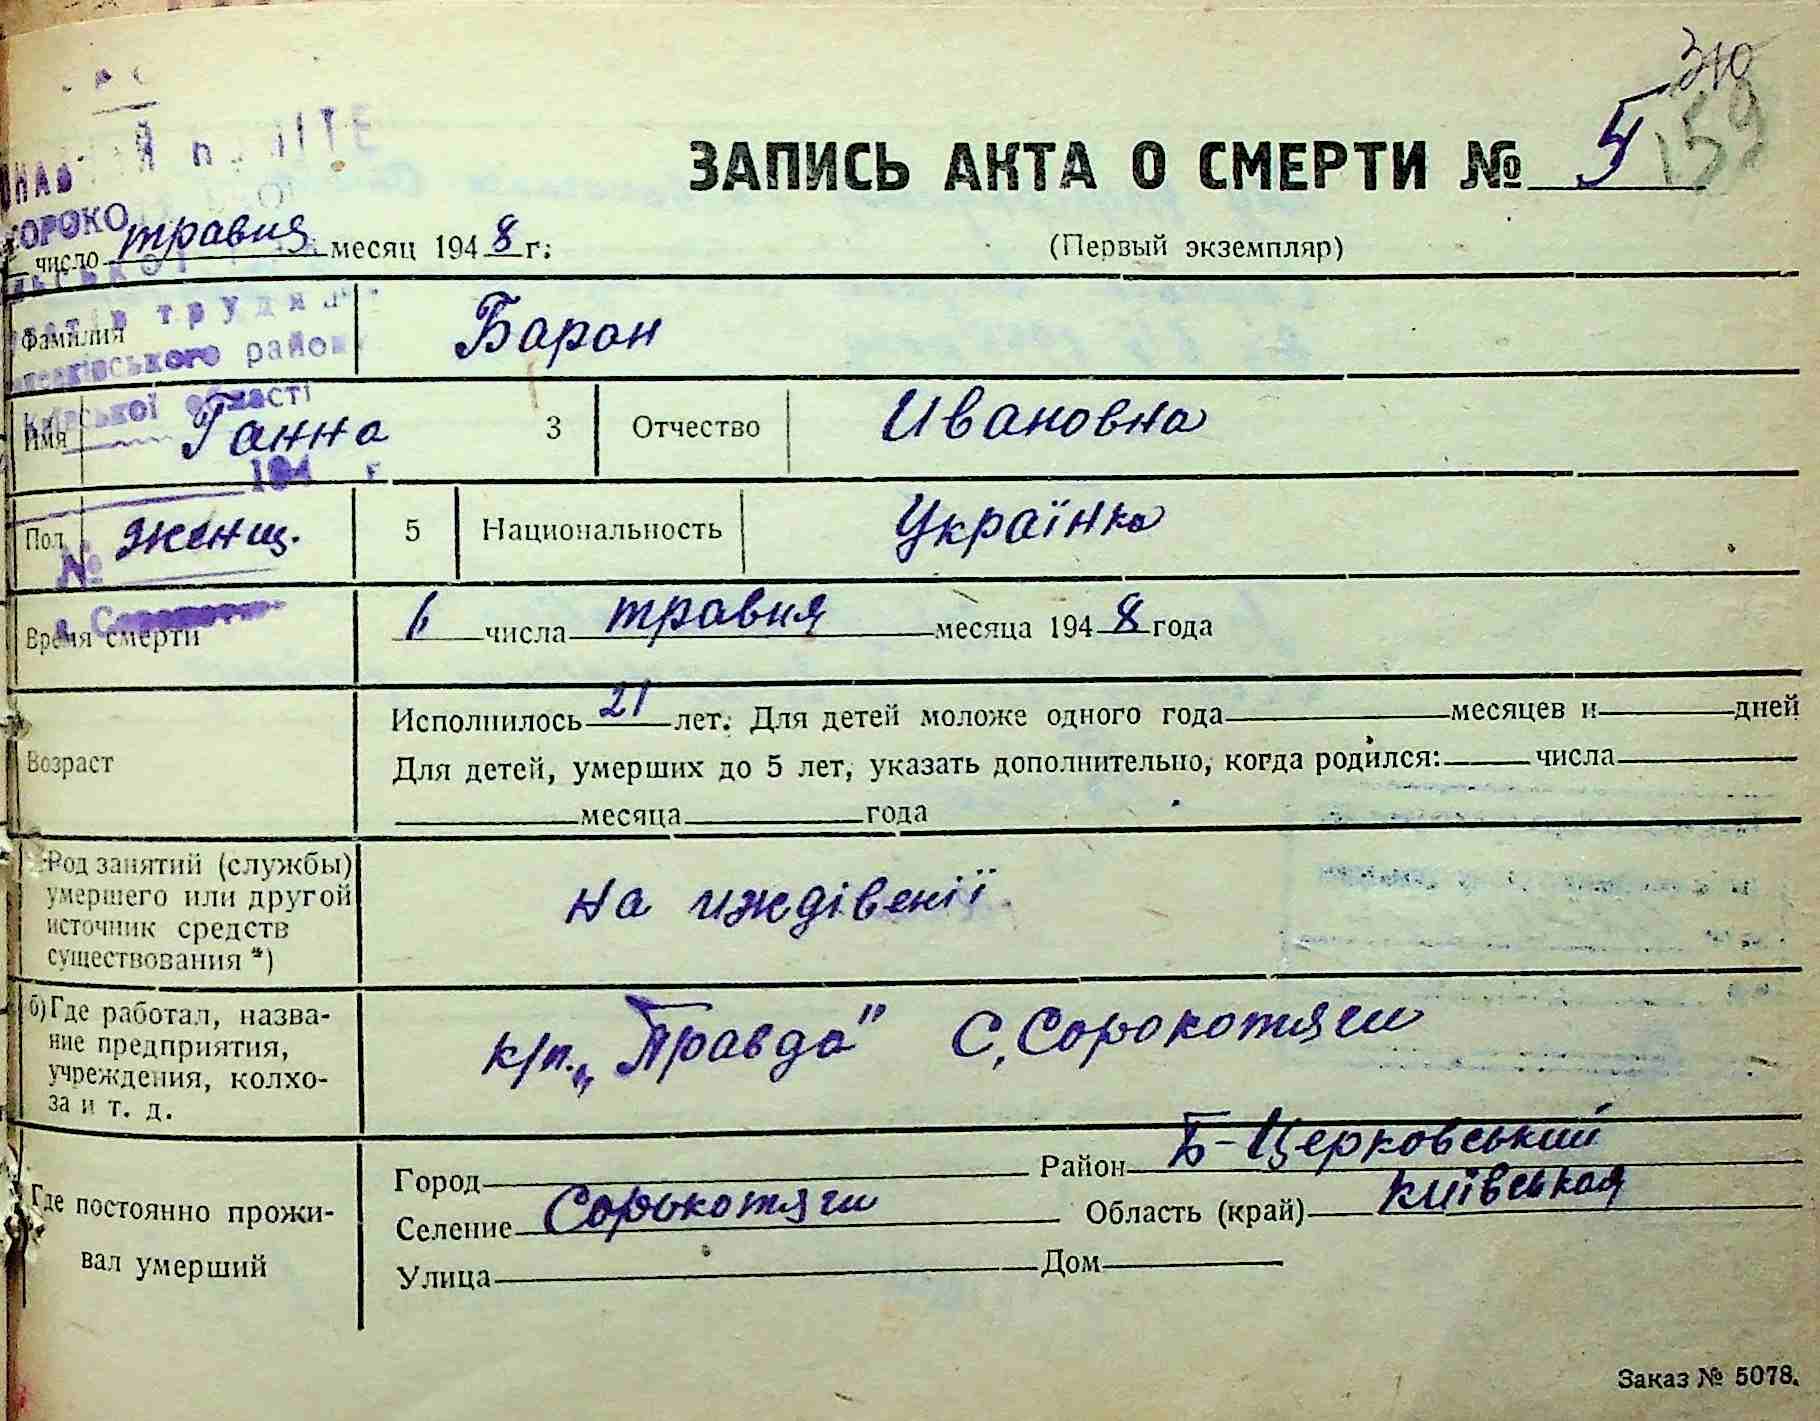 310
ЗАПИСЬ АКТА О СМЕРТИ № 5 159
число травня месяц 1948 г.
(Первый экземпляр)
Фамилия Барон
Имя Ганна 3 Отчество Ивановна
Пол женщ. 5 Национальность Українка
Время смерти 6 числа травня месяца 1948 года
Исполнилось 21 лет. Для детей моложе одного года месяцев и дней
Возраст
Для детей, умерших до 5 лет, указать дополнительно, когда родился: числа
месяца года
Род занятий (службы)
умершего или другой
источник средств
существования *)
на иждівенії
б) Где работал, назва-
ние предприятия,
учреждения, колхо-
за и т. д.
к/п. „Правда" С, Сорокотяги
Где постоянно прожи-
вал умерший
Город Район Б-Церковський
Селение Сорокотяги Область (край) київськая
Улица Дом
района
Київської області
194 г.
№
Заказ № 5078.